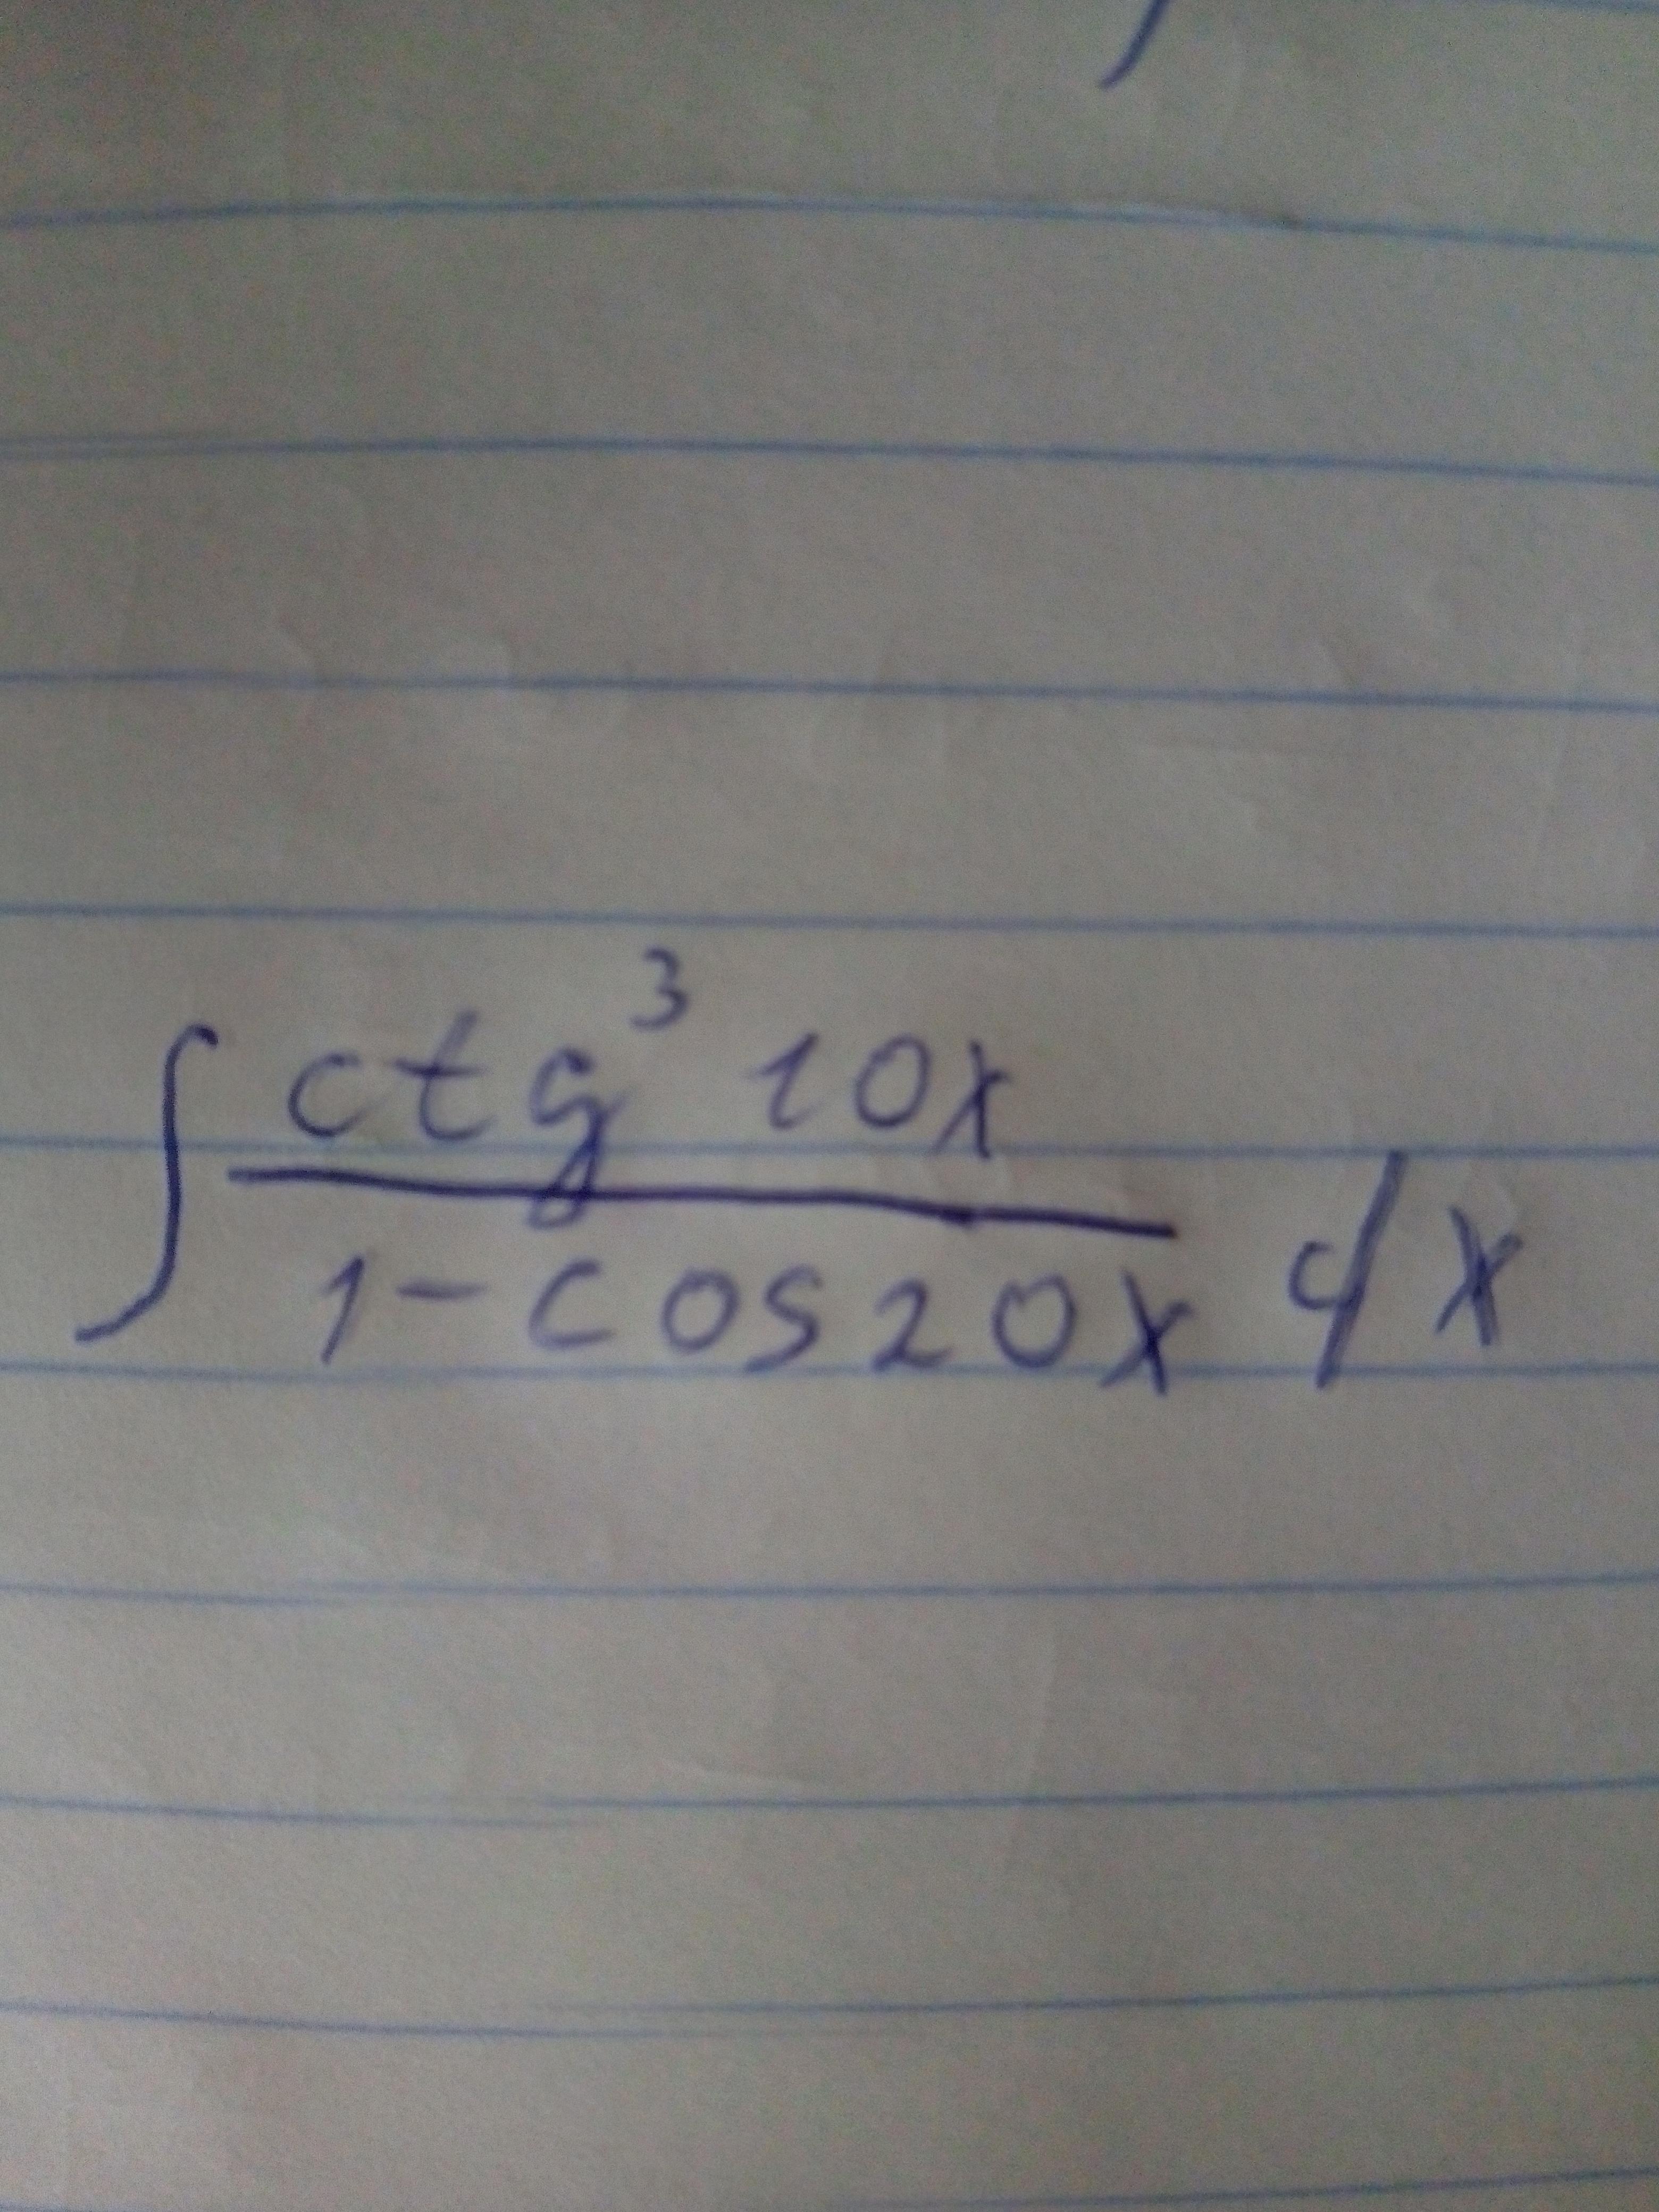 ∫ ctg³ 10x / 1 - cos 20x dx